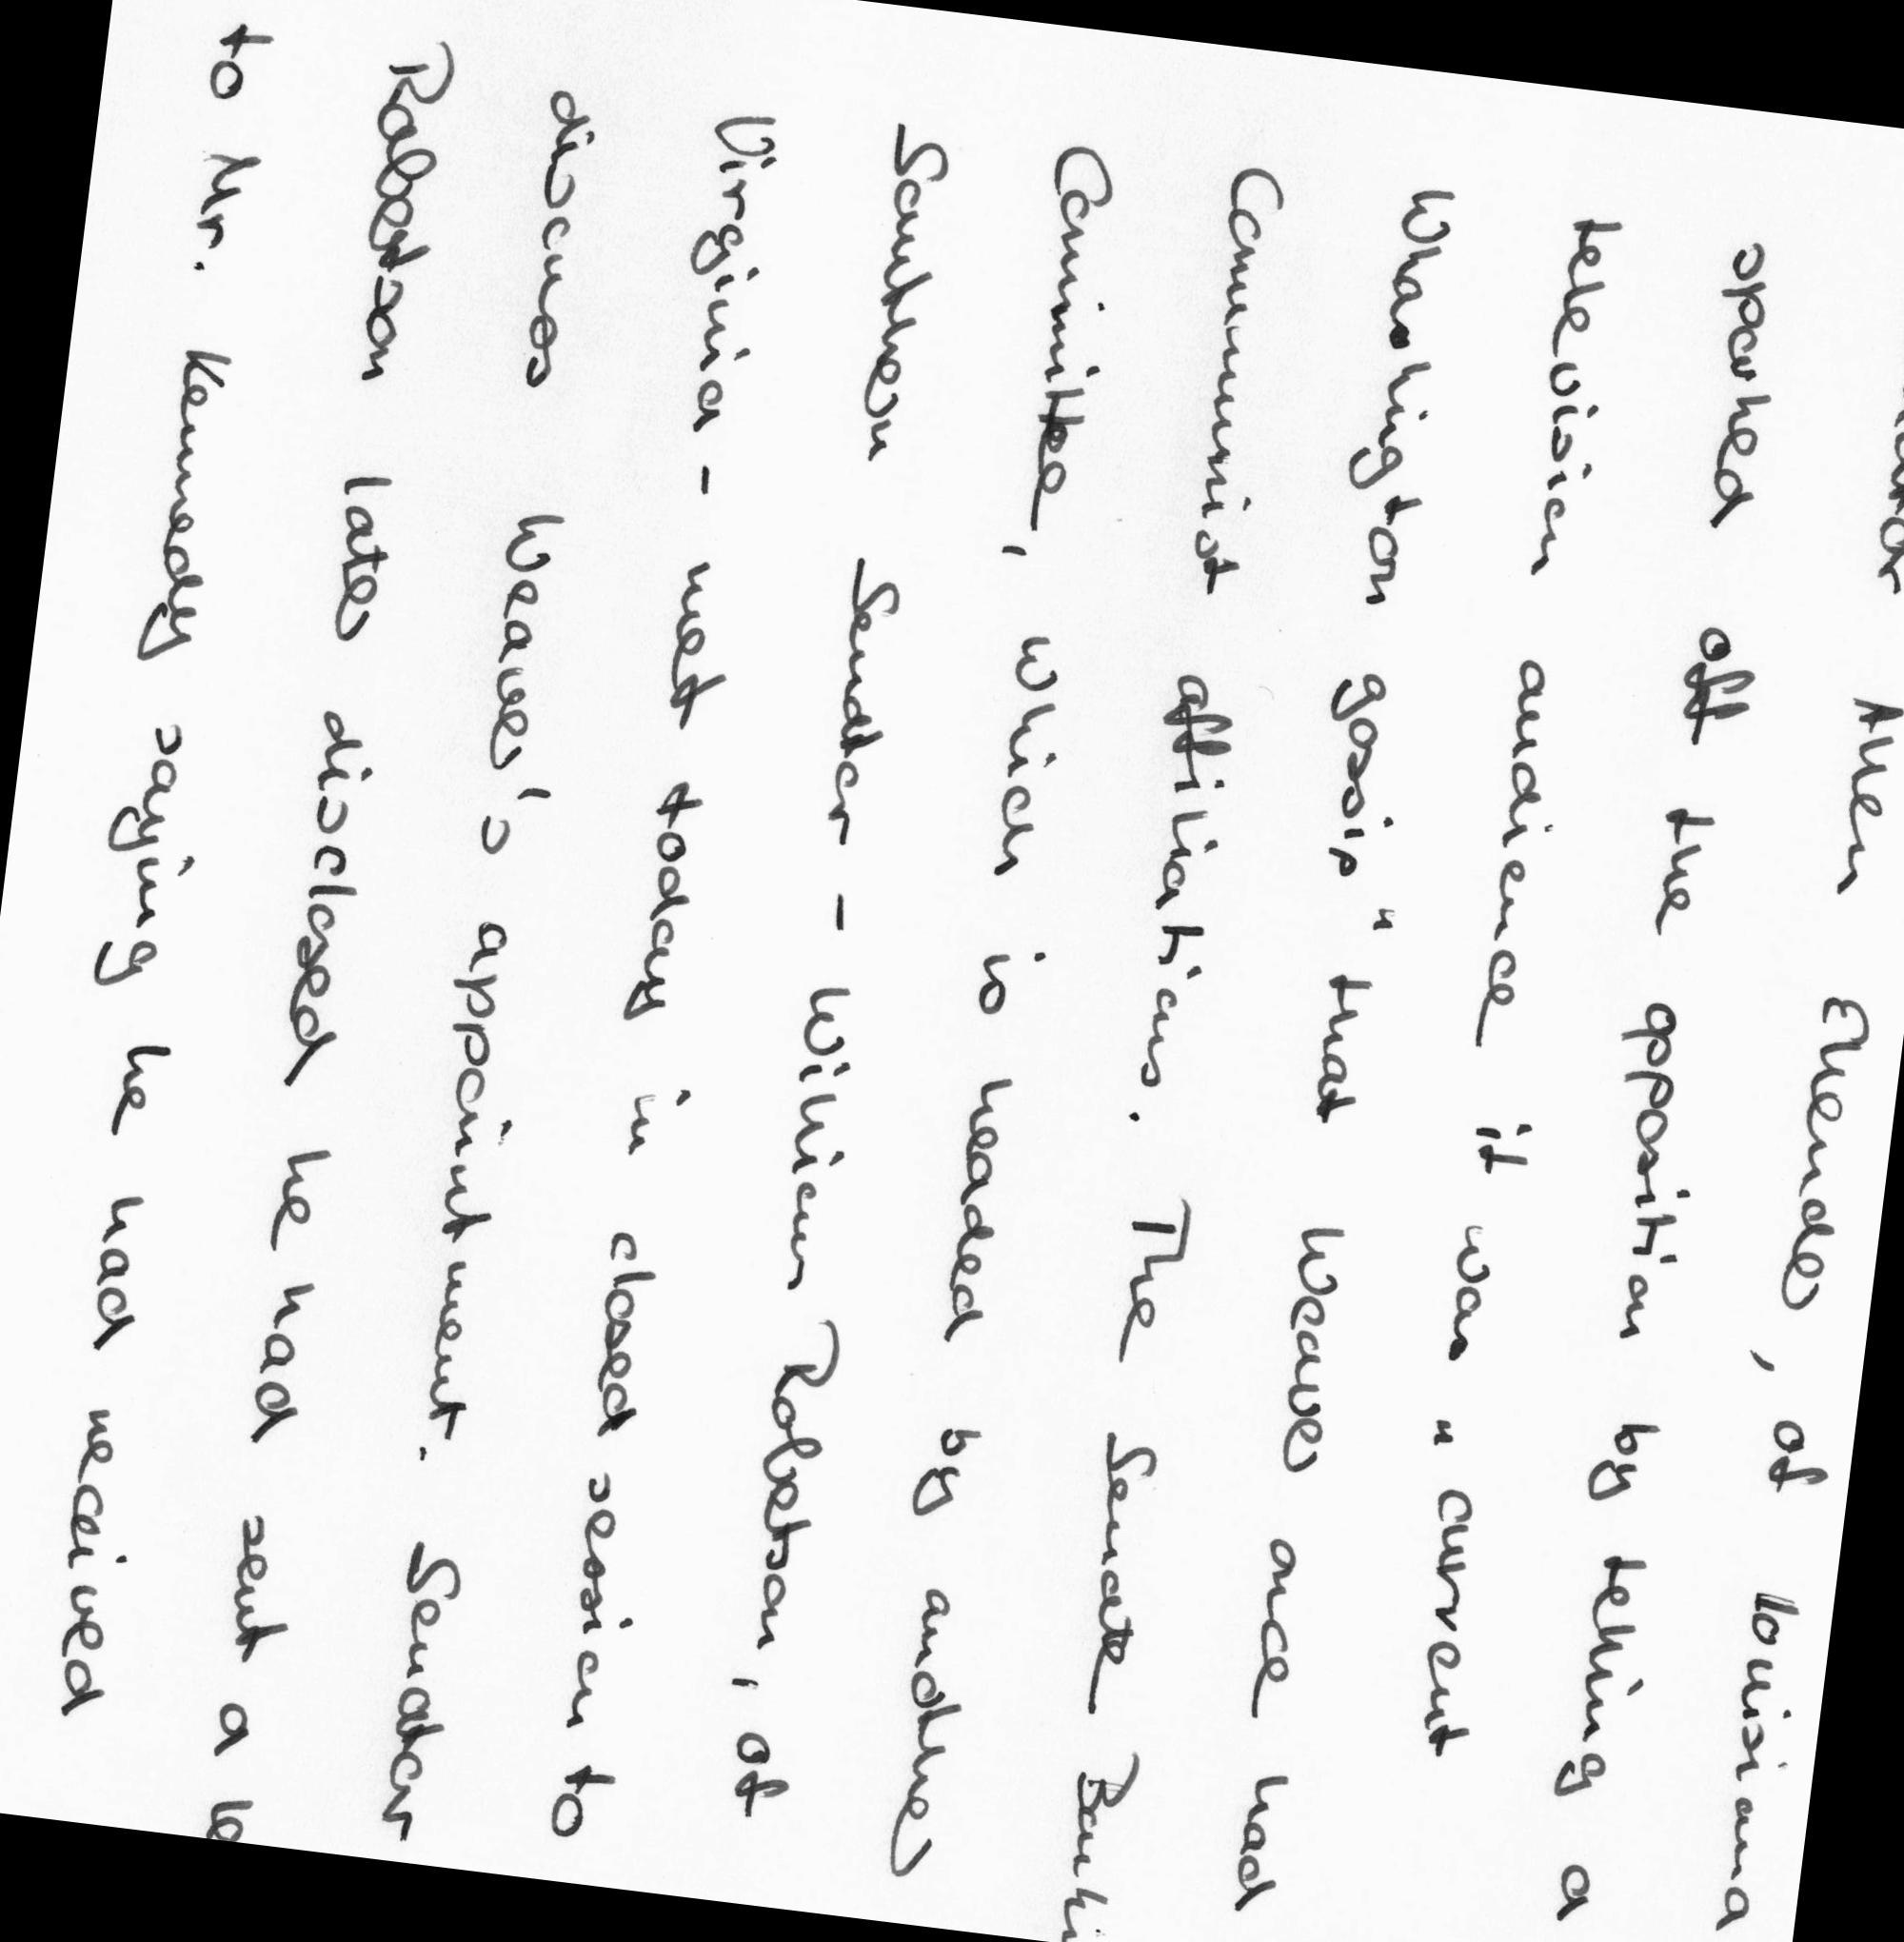 Allen Ellender, of Louisiana
sparked off the opposition by telling a
television audience it was "current
Whashington gossip" that Weaver once had
Communist affiliations. The Senate
Committee, which is headed by another
Southern Senator - William Robertson, of
Virginia - met today in closed session to
discuss Weaver's appointment. Senator
Robertson later disclosed he had sent a
to Mr. Kennedy saying he had received